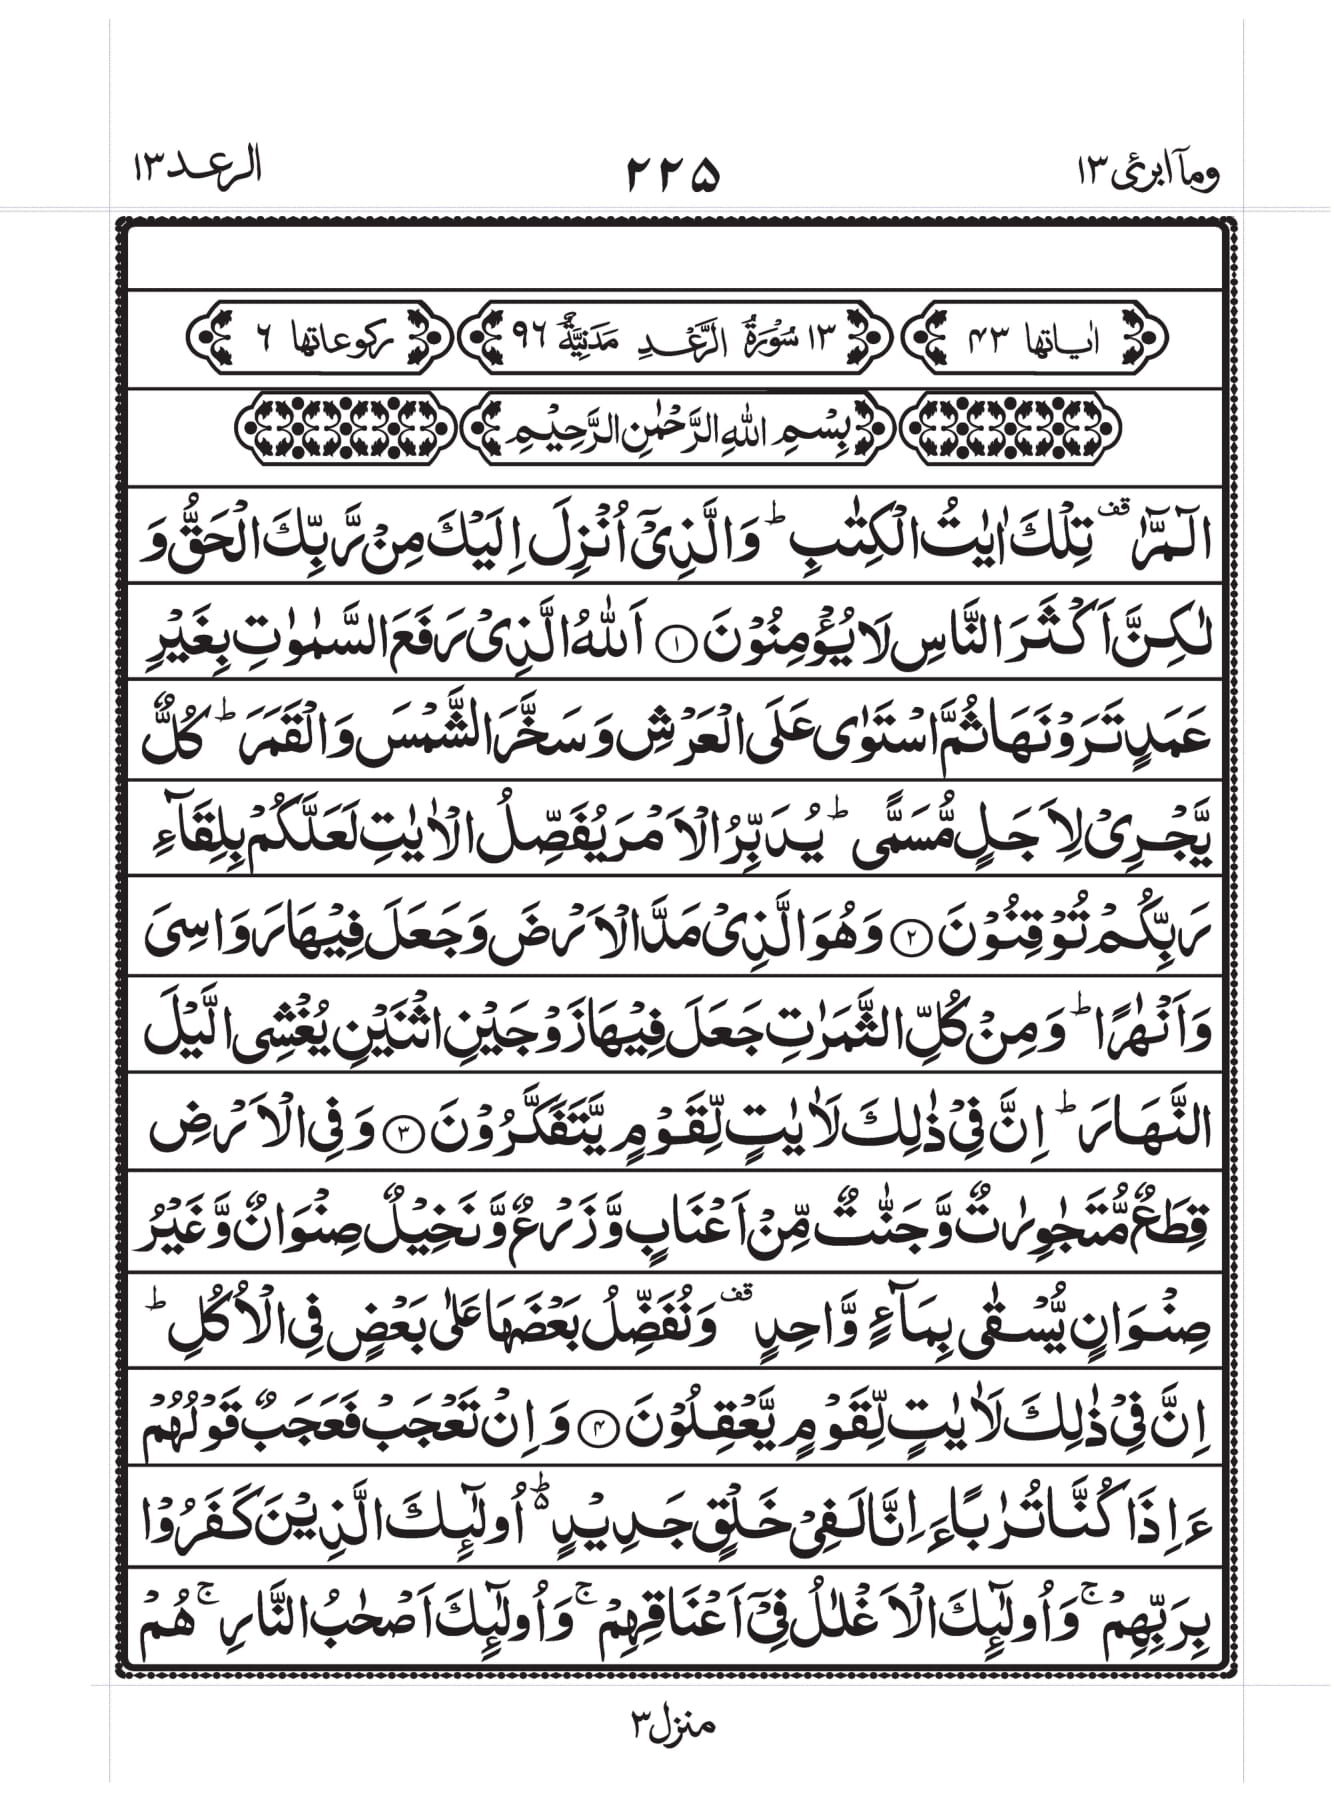 وماۤ ابرئ ١٣ ٢٢٥ الرعد ١٣
اٰیاتها ۴۳ ١٣ سُوْرَةُ الرَّعْدِ مَدَنِيَّةٌ ٩٦ ركوعاتها ٦
بِسْمِ اللهِ الرَّحْمٰنِ الرَّحِيْمِ
الٓمّٓرٰ ۟ تِلْكَ اٰيٰتُ الْكِتٰبِ ؕ وَالَّذِيْۤ اُنْزِلَ اِلَيْكَ مِنْ رَّبِّكَ الْحَقُّ وَ
لٰكِنَّ اَكْثَرَ النَّاسِ لَا يُؤْمِنُوْنَ ١ اَللّٰهُ الَّذِيْ رَفَعَ السَّمٰوٰتِ بِغَيْرِ
عَمَدٍ تَرَوْنَهَا ثُمَّ اسْتَوٰى عَلَى الْعَرْشِ وَسَخَّرَ الشَّمْسَ وَالْقَمَرَ ؕ كُلٌّ
يَّجْرِيْ لِاَجَلٍ مُّسَمًّى ؕ يُدَبِّرُ الْاَمْرَ يُفَصِّلُ الْاٰيٰتِ لَعَلَّكُمْ بِلِقَآءِ
رَبِّكُمْ تُوْقِنُوْنَ ٢ وَهُوَ الَّذِيْ مَدَّ الْاَرْضَ وَجَعَلَ فِيْهَا رَوَاسِيَ
وَاَنْهٰرًا ؕ وَمِنْ كُلِّ الثَّمَرٰتِ جَعَلَ فِيْهَا زَوْجَيْنِ اثْنَيْنِ يُغْشِي الَّيْلَ
النَّهَارَ ؕ اِنَّ فِيْ ذٰلِكَ لَاٰيٰتٍ لِّقَوْمٍ يَّتَفَكَّرُوْنَ ٣ وَفِي الْاَرْضِ
قِطَعٌ مُّتَجٰوِرٰتٌ وَّجَنّٰتٌ مِّنْ اَعْنَابٍ وَّزَرْعٌ وَّنَخِيْلٌ صِنْوَانٌ وَّغَيْرُ
صِنْوَانٍ يُّسْقٰى بِمَآءٍ وَّاحِدٍ ۟ وَنُفَضِّلُ بَعْضَهَا عَلٰى بَعْضٍ فِي الْاُكُلِ ؕ
اِنَّ فِيْ ذٰلِكَ لَاٰيٰتٍ لِّقَوْمٍ يَّعْقِلُوْنَ ۴ وَاِنْ تَعْجَبْ فَعَجَبٌ قَوْلُهُمْ
ءَاِذَا كُنَّا تُرٰبًا ءَاِنَّا لَفِيْ خَلْقٍ جَدِيْدٍ ۵ؕ اُولٰٓئِكَ الَّذِيْنَ كَفَرُوْا
بِرَبِّهِمْ ۚ وَاُولٰٓئِكَ الْاَغْلٰلُ فِيْۤ اَعْنَاقِهِمْ ۚ وَاُولٰٓئِكَ اَصْحٰبُ النَّارِ ۚ هُمْ
منزل ٣